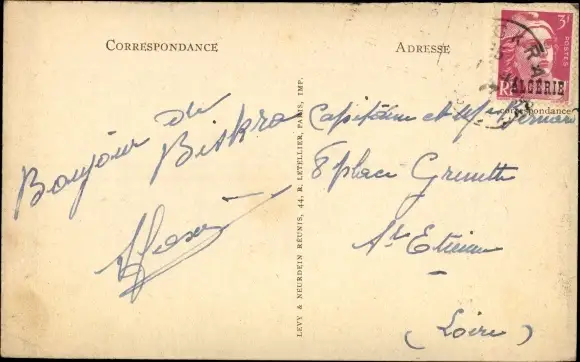 CORRESPONDANCE
ADRESSE
3F
POSTES
ALGÉRIE
Correspondance
Bonjour de
Biskra
LEVY & NEURDEIN RÉUNIS, 44, R. LETELLIER, PARIS, IMP.
Capitaine et Mme Bernard
8 place Grenette
St Etienne
(Loire)